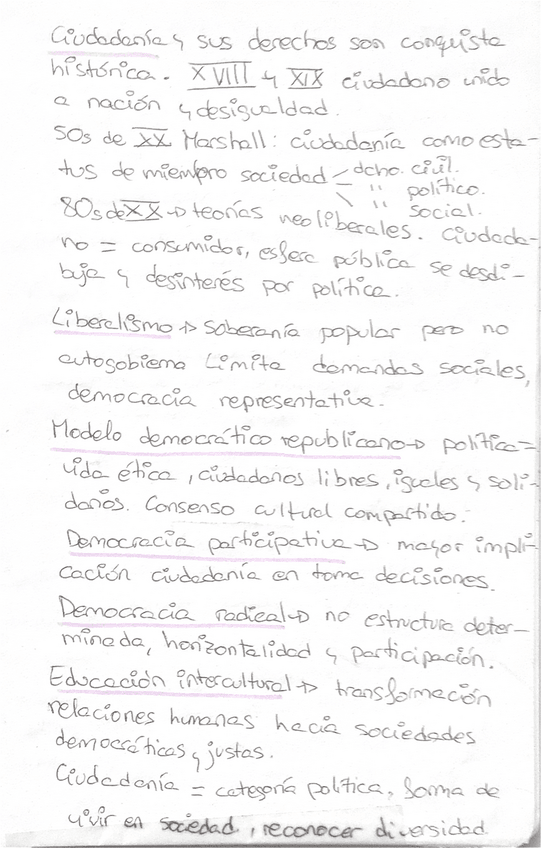 Ciudadanía y sus derechos son conquista
histórica. XVIII y XIX ciudadano unido
a nación y desigualdad.
50s de XX Marshall: ciudadanía como esta-
tus de miembro sociedad - dcho. civil.
" político.
" social.
80s de XX → teorías neoliberales. Ciudada-
no = consumidor, esfera pública se desdi-
buja y desinterés por política.
Liberalismo → soberanía popular pero no
autogobierna Limita demandas sociales,
democracia representativa.
Modelo democrático republicano → política=
vida ética, ciudadanos libres, iguales y soli-
darios. Consenso cultural compartido.
Democracia participativa → mayor impli-
cación ciudadanía en toma decisiones.
Democracia radical → no estructura deter-
minada, horizontalidad y participación.
Educación intercultural → transformación
relaciones humanas hacia sociedades
democráticas y justas.
Ciudadanía = categoría política, forma de
vivir en sociedad, reconocer diversidad